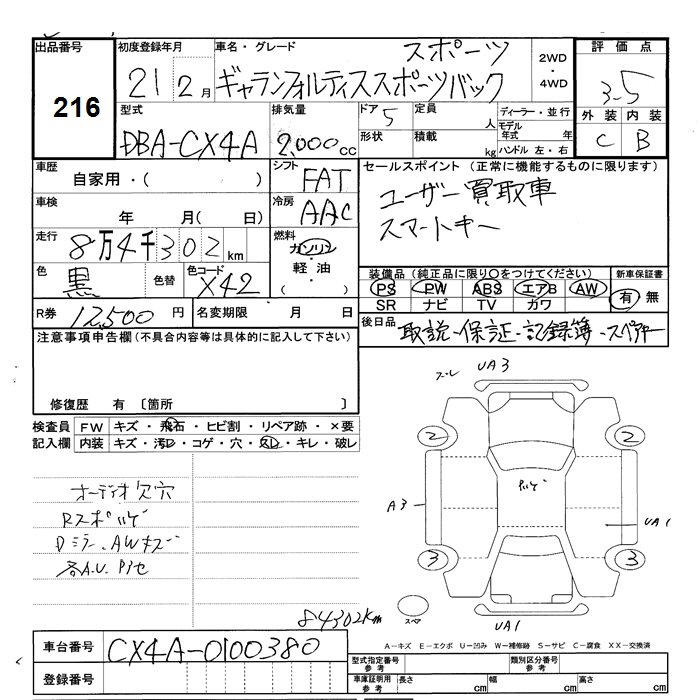 出品番号 初度登録年月 車名・グレード スポーツ 2WD・4WD 評価点
216 21 2月 ギャランフォルティススポーツバック 3.5
型式 排気量 ドア 5 定員 人 ディーラー・並行 外装 内装
DBA-CX4A 2,000cc 形状 積載 kg モデル年式 年 ハンドル 左・右 C B
車歴 自家用・( ) シフト FAT セールスポイント (正常に機能するものに限ります)
車検 年 月( 日) 冷房 AAC ユーザー買取車
走行 8万4千302km 燃料 ガソリン・軽油・( ) スマートキー
色 黒 色替 色コード X42 装備品 (純正品に限り○をつけてください) 新車保証書
PS PW ABS エアB AW 有・無
SR ナビ TV カワ
R券 12,500円 名変期限 月 日 後日品 取説・保証・記録簿・スペアキー
注意事項申告欄 (不具合内容等は具体的に記入して下さい)
修復歴 有 〔箇所 〕
検査員 FW キズ・飛石・ヒビ割・リペア跡・×要
記入欄 内装 キズ・汚レ・コゲ・穴・スレ・キレ・破レ
オーディオ欠穴
Rスポハゲ
Dミラー、AWキズ
各A.U.
ズレ UA3
2 2
ハゲ
A3 UA1
3 3
スペア UA1
84302km
A-キズ E-エクボ U-凹み W-補修跡 S-サビ C-腐食 XX-交換済
車台番号 CX4A-0100380
登録番号
型式指定番号 参考 類別区分番号 参考
車庫証明用 参考 長さ cm 幅 cm 高さ cm